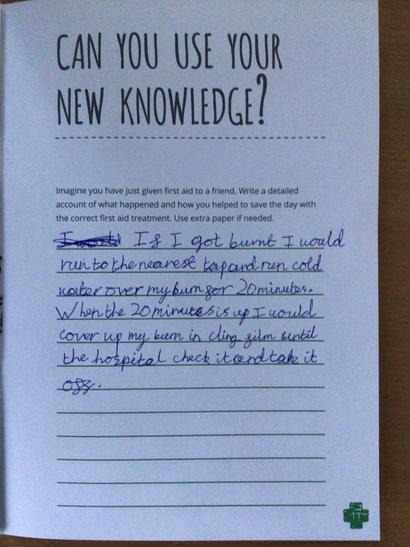 CAN YOU USE YOUR
NEW KNOWLEDGE?
Imagine you have just given first aid to a friend. Write a detailed
account of what happened and how you helped to save the day with
the correct first aid treatment. Use extra paper if needed.
If I got burnt I would
run to the nearest tap and run cold
water over my burn for 20 minutes.
When the 20 minutes is up I would
cover up my burn in cling film until
the hospital check it and take it
off.
11